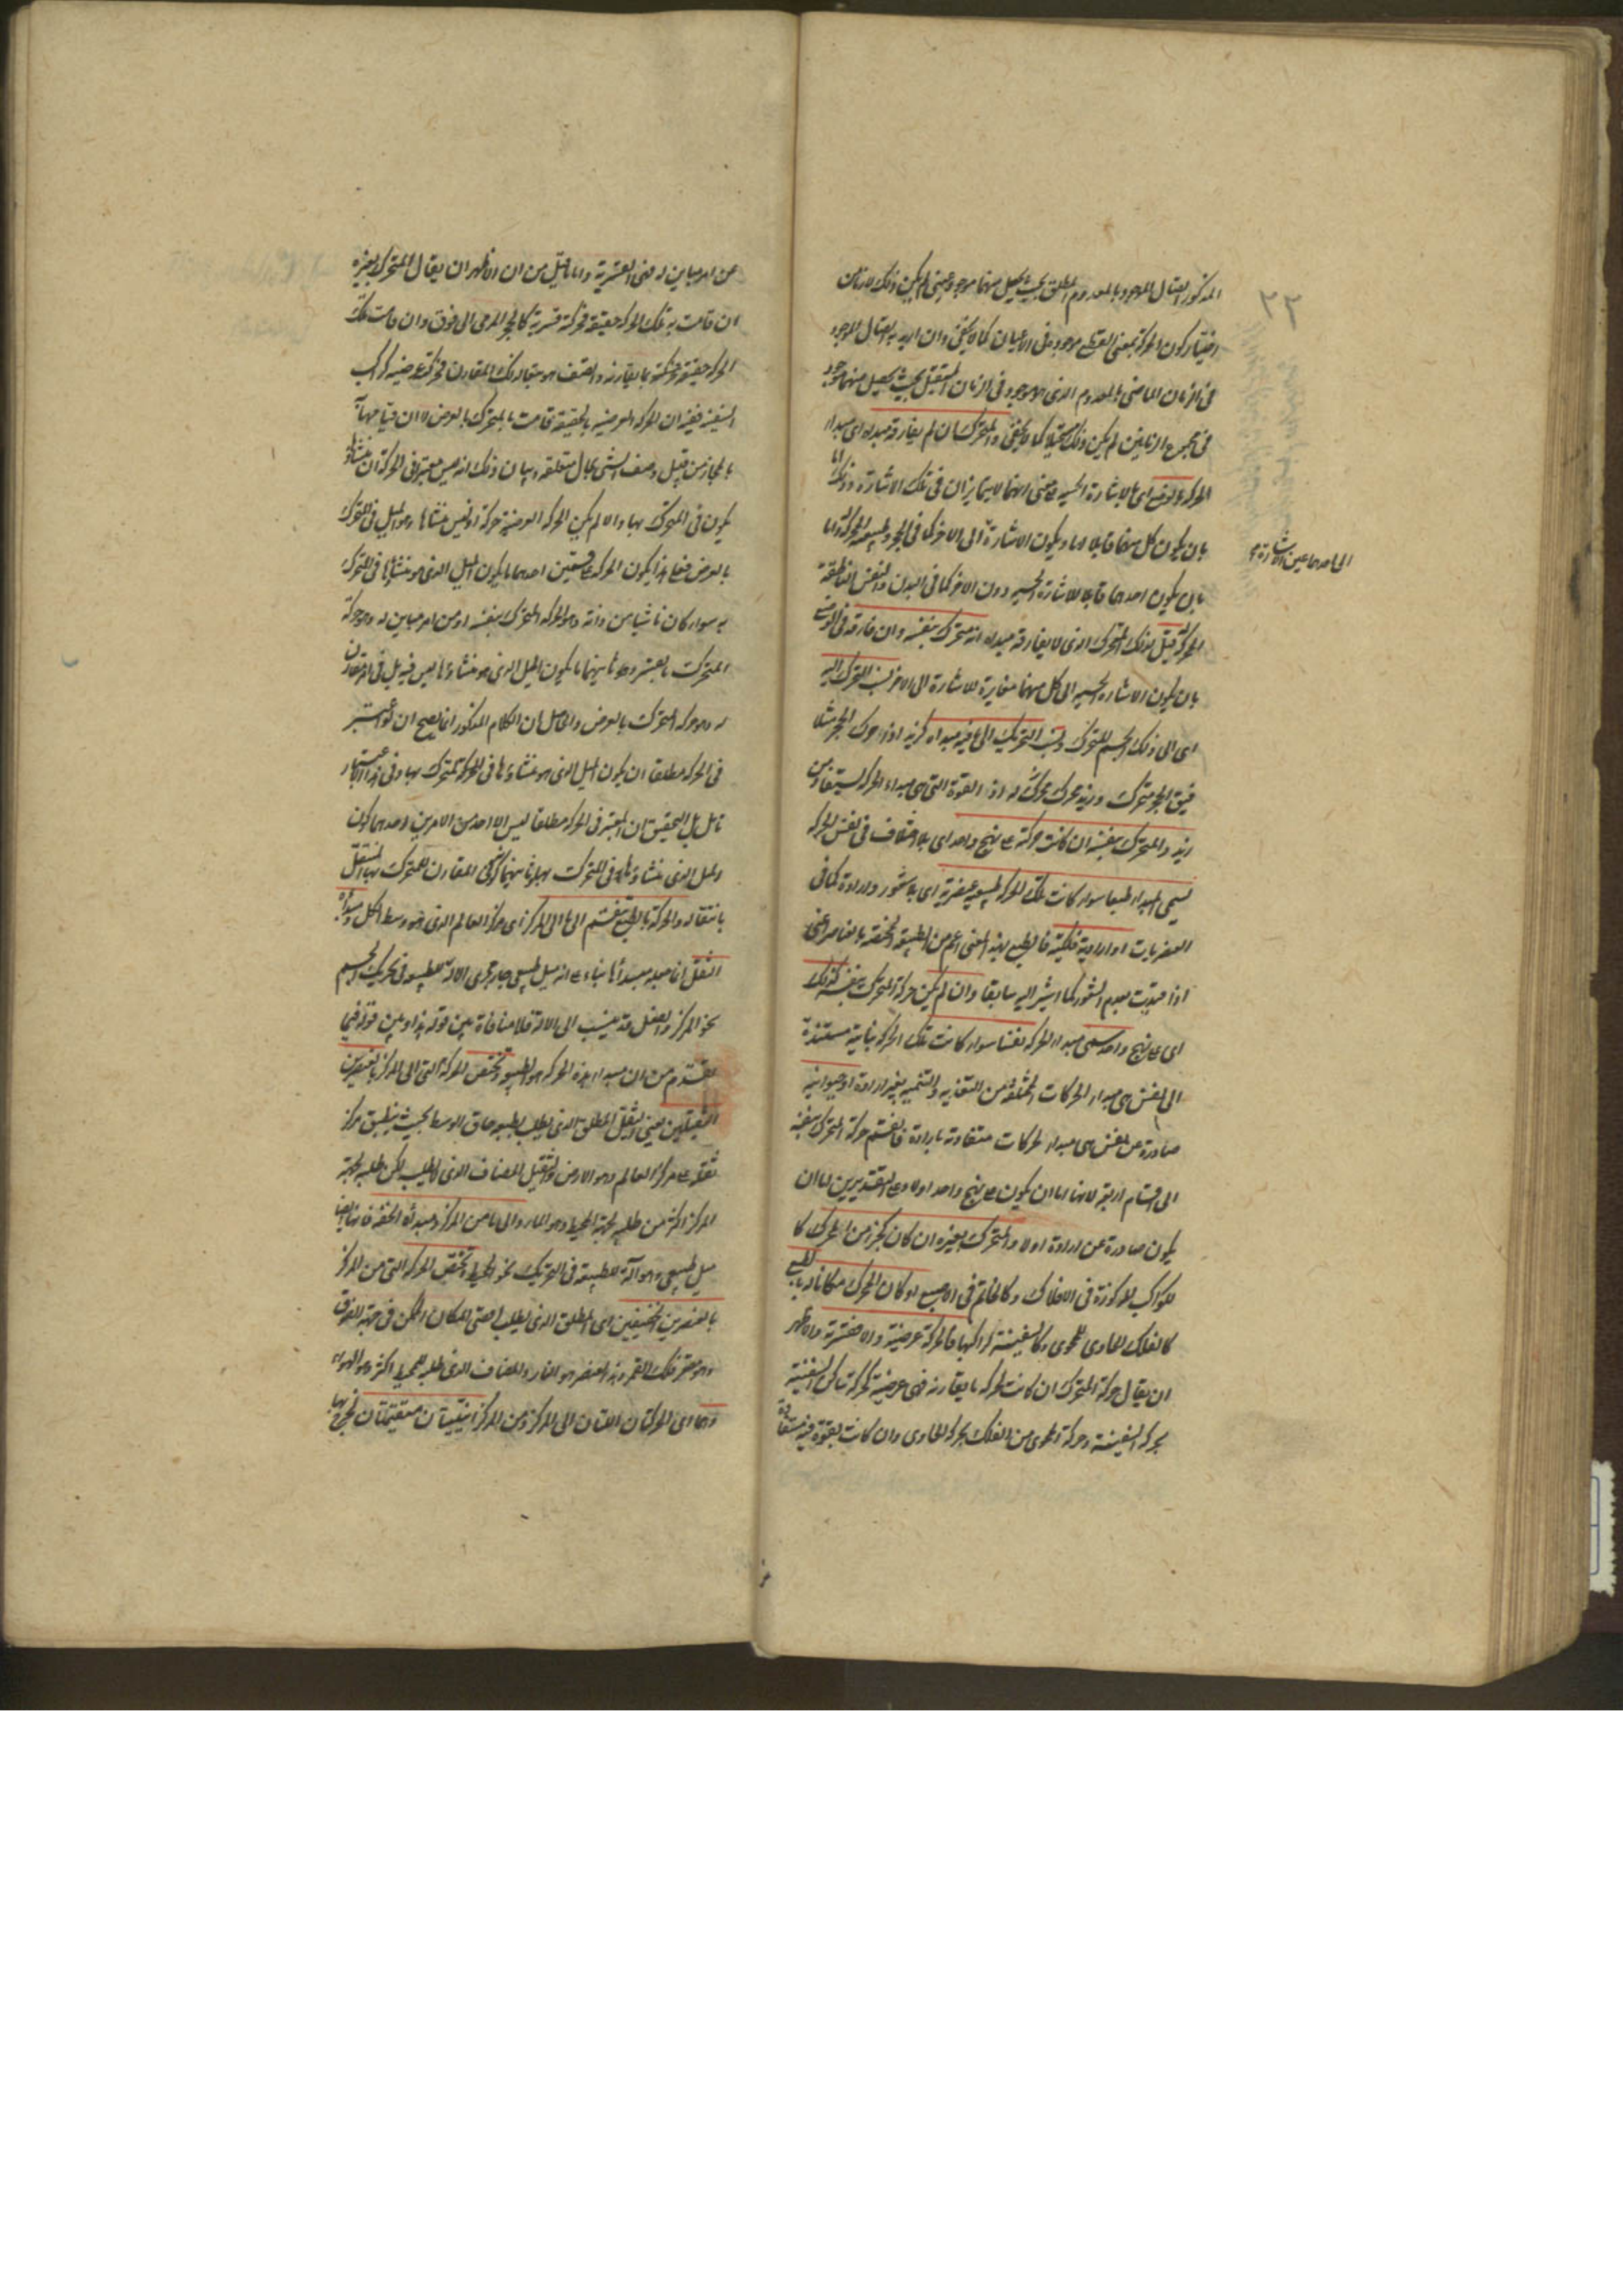 ٢٣
المذكور اتصال الموجود بالمعدوم المطلق بحيث يحصل منهما موجود عينى لم يكن ذلك لازما من
اختيار كون الحركة بمعنى القطع موجودة فى الاعيان كما لا يخفى وان اريد به اتصال الموجود
فى الزمان الماضى بالمعدوم الذى هو موجود فى الزمان المستقبل بحيث يحصل منهما موجود
فى مجموع الزمانين لم يكن ذلك مستحيلا كما لا يخفى والمتحرك ان لم يفارقه مبدأه اى مبدأ
الحركة بالوضع اى بالاشارة الحسية على معنى انهما لا يتمايزان فى تلك الاشارة وذلك اما
بان يكون كل منهما قابلا لها ويكون الاشارة الى الاخر كما فى الحجر وطبيعته المحركة واما
الى احدهما عين الاشارة
بان يكون احدهما قابلا للاشارة الحسية دون الاخر كما فى البدن والنفس الناطقة
المحركة قيل لذلك المتحرك الذى لا يفارقه مبدأه انه متحرك بنفسه وان فارقه فى الوضع
بان يكون الاشارة الحسية الى كل منهما مغايرة للاشارة الى الاخر نسب التحرك اليه
اى الى ذلك الجسم المتحرك ونسب التحريك الى ما فيه مبدأه كزيد اذا حرك الحجر مثلا
فيقال الحجر متحرك وزيد محرك له اذ القوة التى هى مبدأ الحركة مستفادة من
زيد والمتحرك بنفسه ان كانت حركته على نهج واحد اى بلا اختلاف فى نفس الحركة
يسمى المبدأ طبعا سواء كانت تلك الحركة طبيعية عنصرية اى بلا شعور وارادة كما فى
العنصريات او ارادية فلكية فالطبع بهذا المعنى اعم من الطبيعة المختصة بالعناصر اعنى
اذا قيدت بعدم الشعور كما اشير اليه سابقا وان لم يكن حركة المتحرك بنفسه كذلك
اى على نهج واحد سمى مبدأ الحركة نفسا سواء كانت تلك الحركة نباتية مستندة
الى نفس هى مبدأ الحركات المختلفة من التغذية والتنمية بغير ارادة او حيوانية
صادرة عن نفس هى مبدأ لحركات متفاوتة بارادة فانقسم حركة المتحرك بنفسه
الى اقسام اربعة لانها اما ان يكون على نهج واحد اولا وعلى التقديرين اما ان
يكون صادرة عن ارادة اولا والمتحرك بغيره ان كان كجزء من المحرك كا
لكواكب المركوزة فى الافلاك وكالخاتم فى الاصبع او كان المحرك مكانا له بالطبع
كالفلك الحاوى للمحوى وكالسفينة لراكبها فالحركة عرضية والا فقسرية والاظهر
ان يقال حركة المتحرك ان كانت لحركة ما يقارنه فهى عرضية كحركة ساكن السفينة
بحركة السفينة وحركة المحوى من الفلك بحركة الحاوى وان كانت بقوة فيه مستفادة
عن امر مباين له فهى القسرية واما ما قيل من ان الاظهر ان يقال المتحرك بغيره
ان قامت به تلك الحركة حقيقة فحركته قسرية كالحجر المرمى الى فوق وان قامت تلك
الحركة حقيقة بما يقارنه واتصف هو بتبعية ذلك المقارن فحركته عرضية كراكب
السفينة ففيه ان الحركة العرضية بالحقيقة قامت بالمتحرك بالعرض لا ان قيامها به
بالمجاز من قبيل وصف الشئ بحال متعلقه وبيان ذلك انه ليس معتبرا فى الحركة ان منشأها
يكون فى المتحرك بها والا لم يكن الحركة العرضية حركة اذ ليس منشأها وهو الميل فى المتحرك
بالعرض فعلى هذا يكون الحركة على قسمين احدهما ما يكون الميل الذى هو منشأها فى المتحرك
به سواء كان ناشيا من ذاته وهو الحركة المتحرك بنفسه او من امر مباين له وهو حركة
المتحرك بالقسر وثانيهما ما يكون الميل الذى هو منشأها ليس فيه بل فى امر مقارن
له وهو حركة المتحرك بالعرض والحاصل ان الكلام المذكور انما يصح ان لو اعتبر
فى الحركة مطلقا ان يكون الميل الذى هو منشأها فى المتحرك بها وفى هذا الاعتبار
تأمل بل التحقيق ان المعتبر فى الحركة مطلقا ليس الا احد من الامرين احدهما كون
الميل الذى منشأها فى المتحرك بها وثانيهما كونه فى المقارن للمتحرك بها المنتقل
بانتقاله والحركة بالطبع تنقسم الى ما الى المركز اى مركز العالم الذى هو وسط الكل ومبدأه
الثقل انما جعله مبدأ لها بناء على انه ميل طبيعى جار مجرى الالة للطبيعة فى تحريك الجسم
نحو المركز والفعل قد ينسب الى الالة فلا منافاة بين قوله هذا وبين قوله فيما
تقدم من ان مبدأ هذه الحركة هو الطبيعة وتختص الحركة التى الى المركز بالعنصرين
الثقيلين يعنى الثقيل المطلق الذى يطلب بطبعه حاق الوسط بحيث ينطبق مركز
ثقله على مركز العالم وهو الارض والثقيل المضاف الذى لا يطلب لكن طلبه لجهة
المركز اكثر من طلبه لجهة المحيط وهو الماء والى ما من المركز ومبدأه الخفة فانها ايضا
ميل طبيعى وهو آلة للطبيعة فى التحريك نحو المحيط وتختص الحركة التى من المركز
بالعنصرين الخفيفين اى المطلق الذى يطلب اقصى المكان الممكن فى جهة الفوق
وهو مقعر فلك القمر وهذا العنصر هو النار والمضاف الذى طلبه للمحيط اكثر وهو الهواء
وهما اى الحركتان اللتان الى المركز ومن المركز اينيتان مستقيمتان فخرج بها